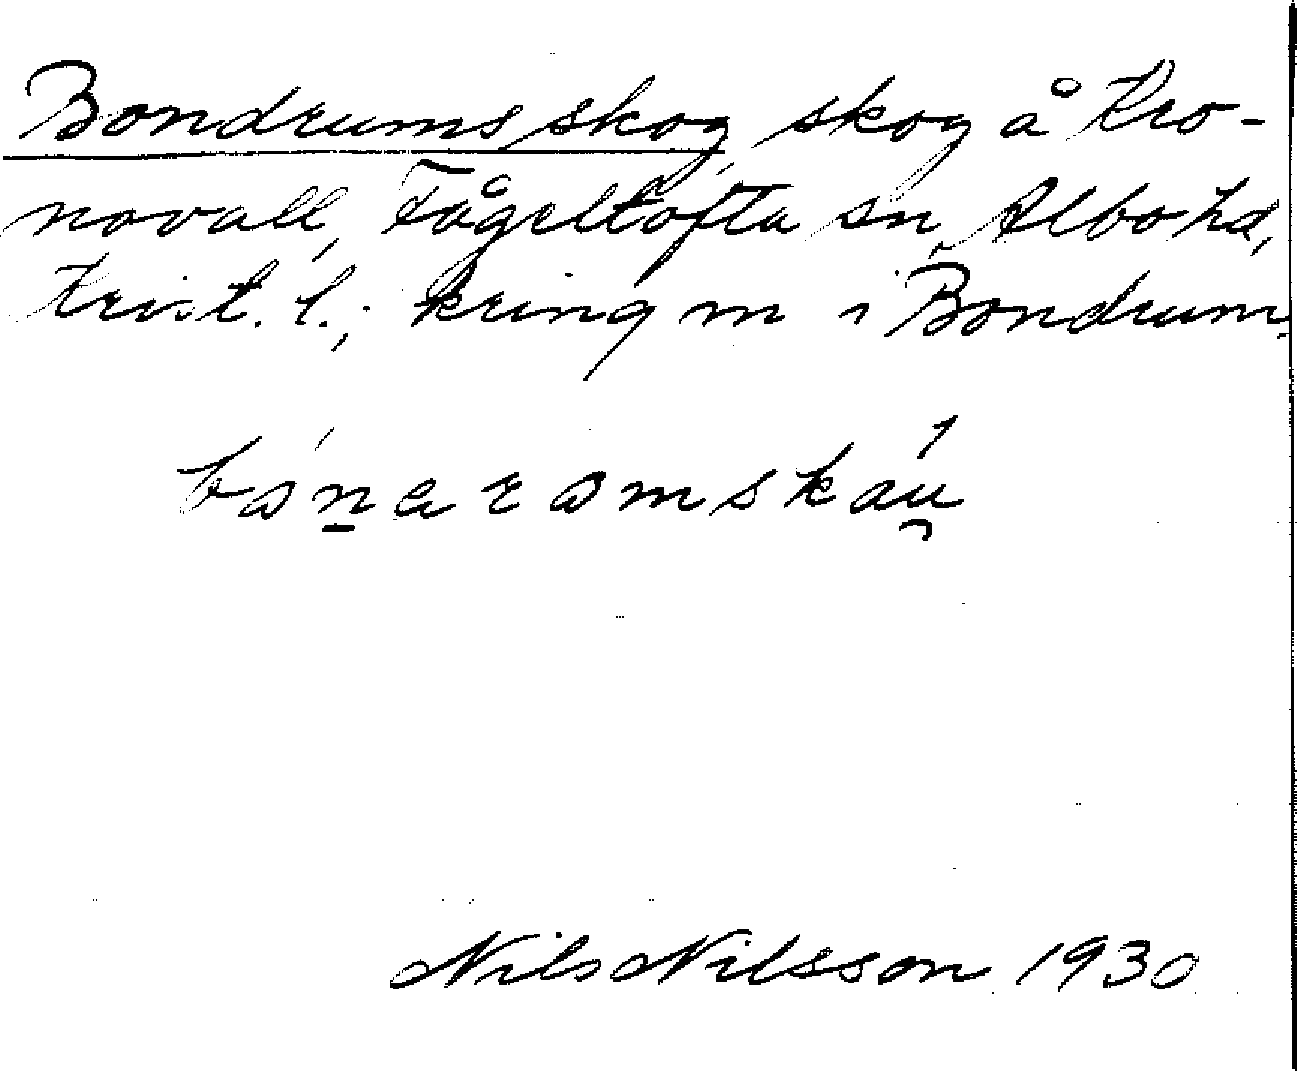 Bondrumsskog, skog å Kro-
novall, Fågeltofta sn, Albo hd,
Krist. l.; kring m i Bondrum.
Nils Nilsson 1930